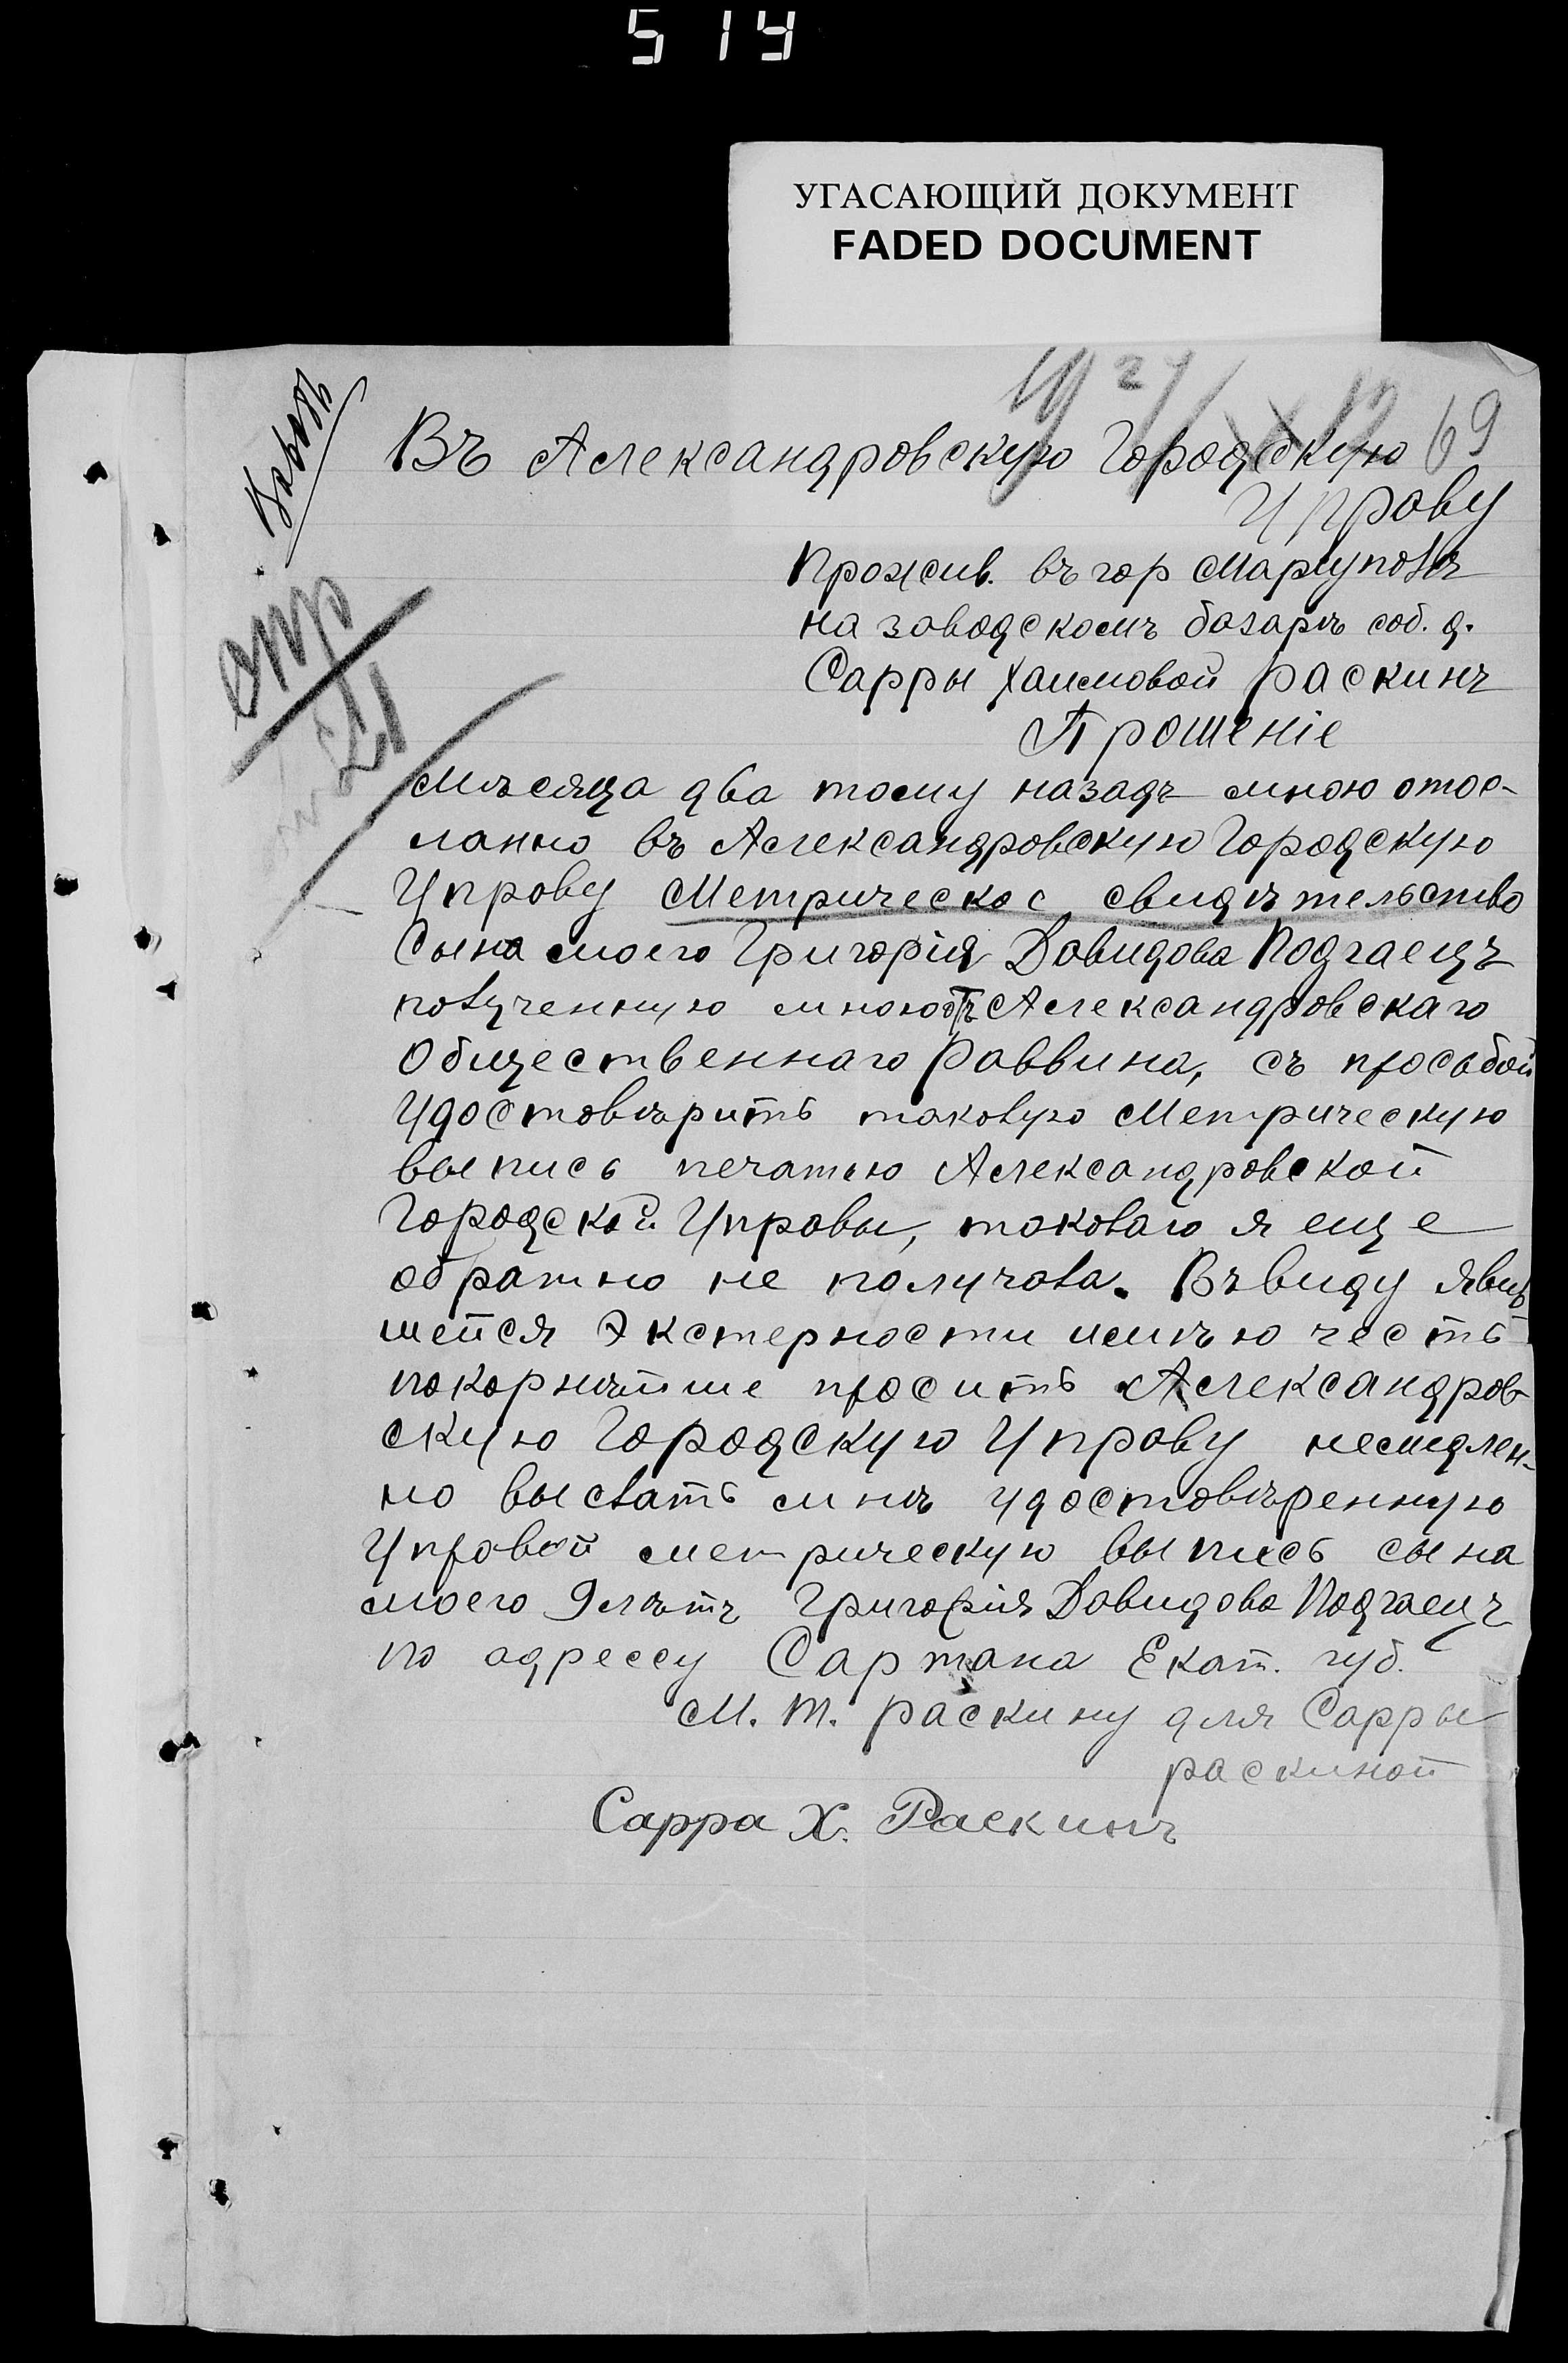 514
УГАСАЮЩИЙ ДОКУМЕНТ
FADED DOCUMENT
69
Въ Александровскую Городскую
Управу
Прожив. въ гор Мариуполѣ
на заводскомъ базарѣ соб. д.
Сарры Хаимовой Раскинъ
Прошеніе
Мѣсяца два тому назадъ мною отос-
ланно въ Александровскую Городскую
Управу Метрическое свидѣтельство
Сына моего Григорія Давидова Подгаецъ
полученную мною отъ Александровскаго
Общественнаго Раввина, съ просьбой
удостовѣрить таковую Метрическую
выпись печатью Александровской
Городской Управы, таковаго я еще
обратно не получала. Въ виду явив
шейся Экстерности имѣю честь
покорнѣйше просить Александров-
скую Городскую Управу немидлен-
но выслать мнѣ удостовѣренную
Управой метрическую выпись сына
моего 9 лѣтъ Григорія Давидова Подгаецъ
по адрессу Сартана Екат. губ.
М. Т. Раскину для Сарры
Раскиной
Сарра Х. Раскинъ